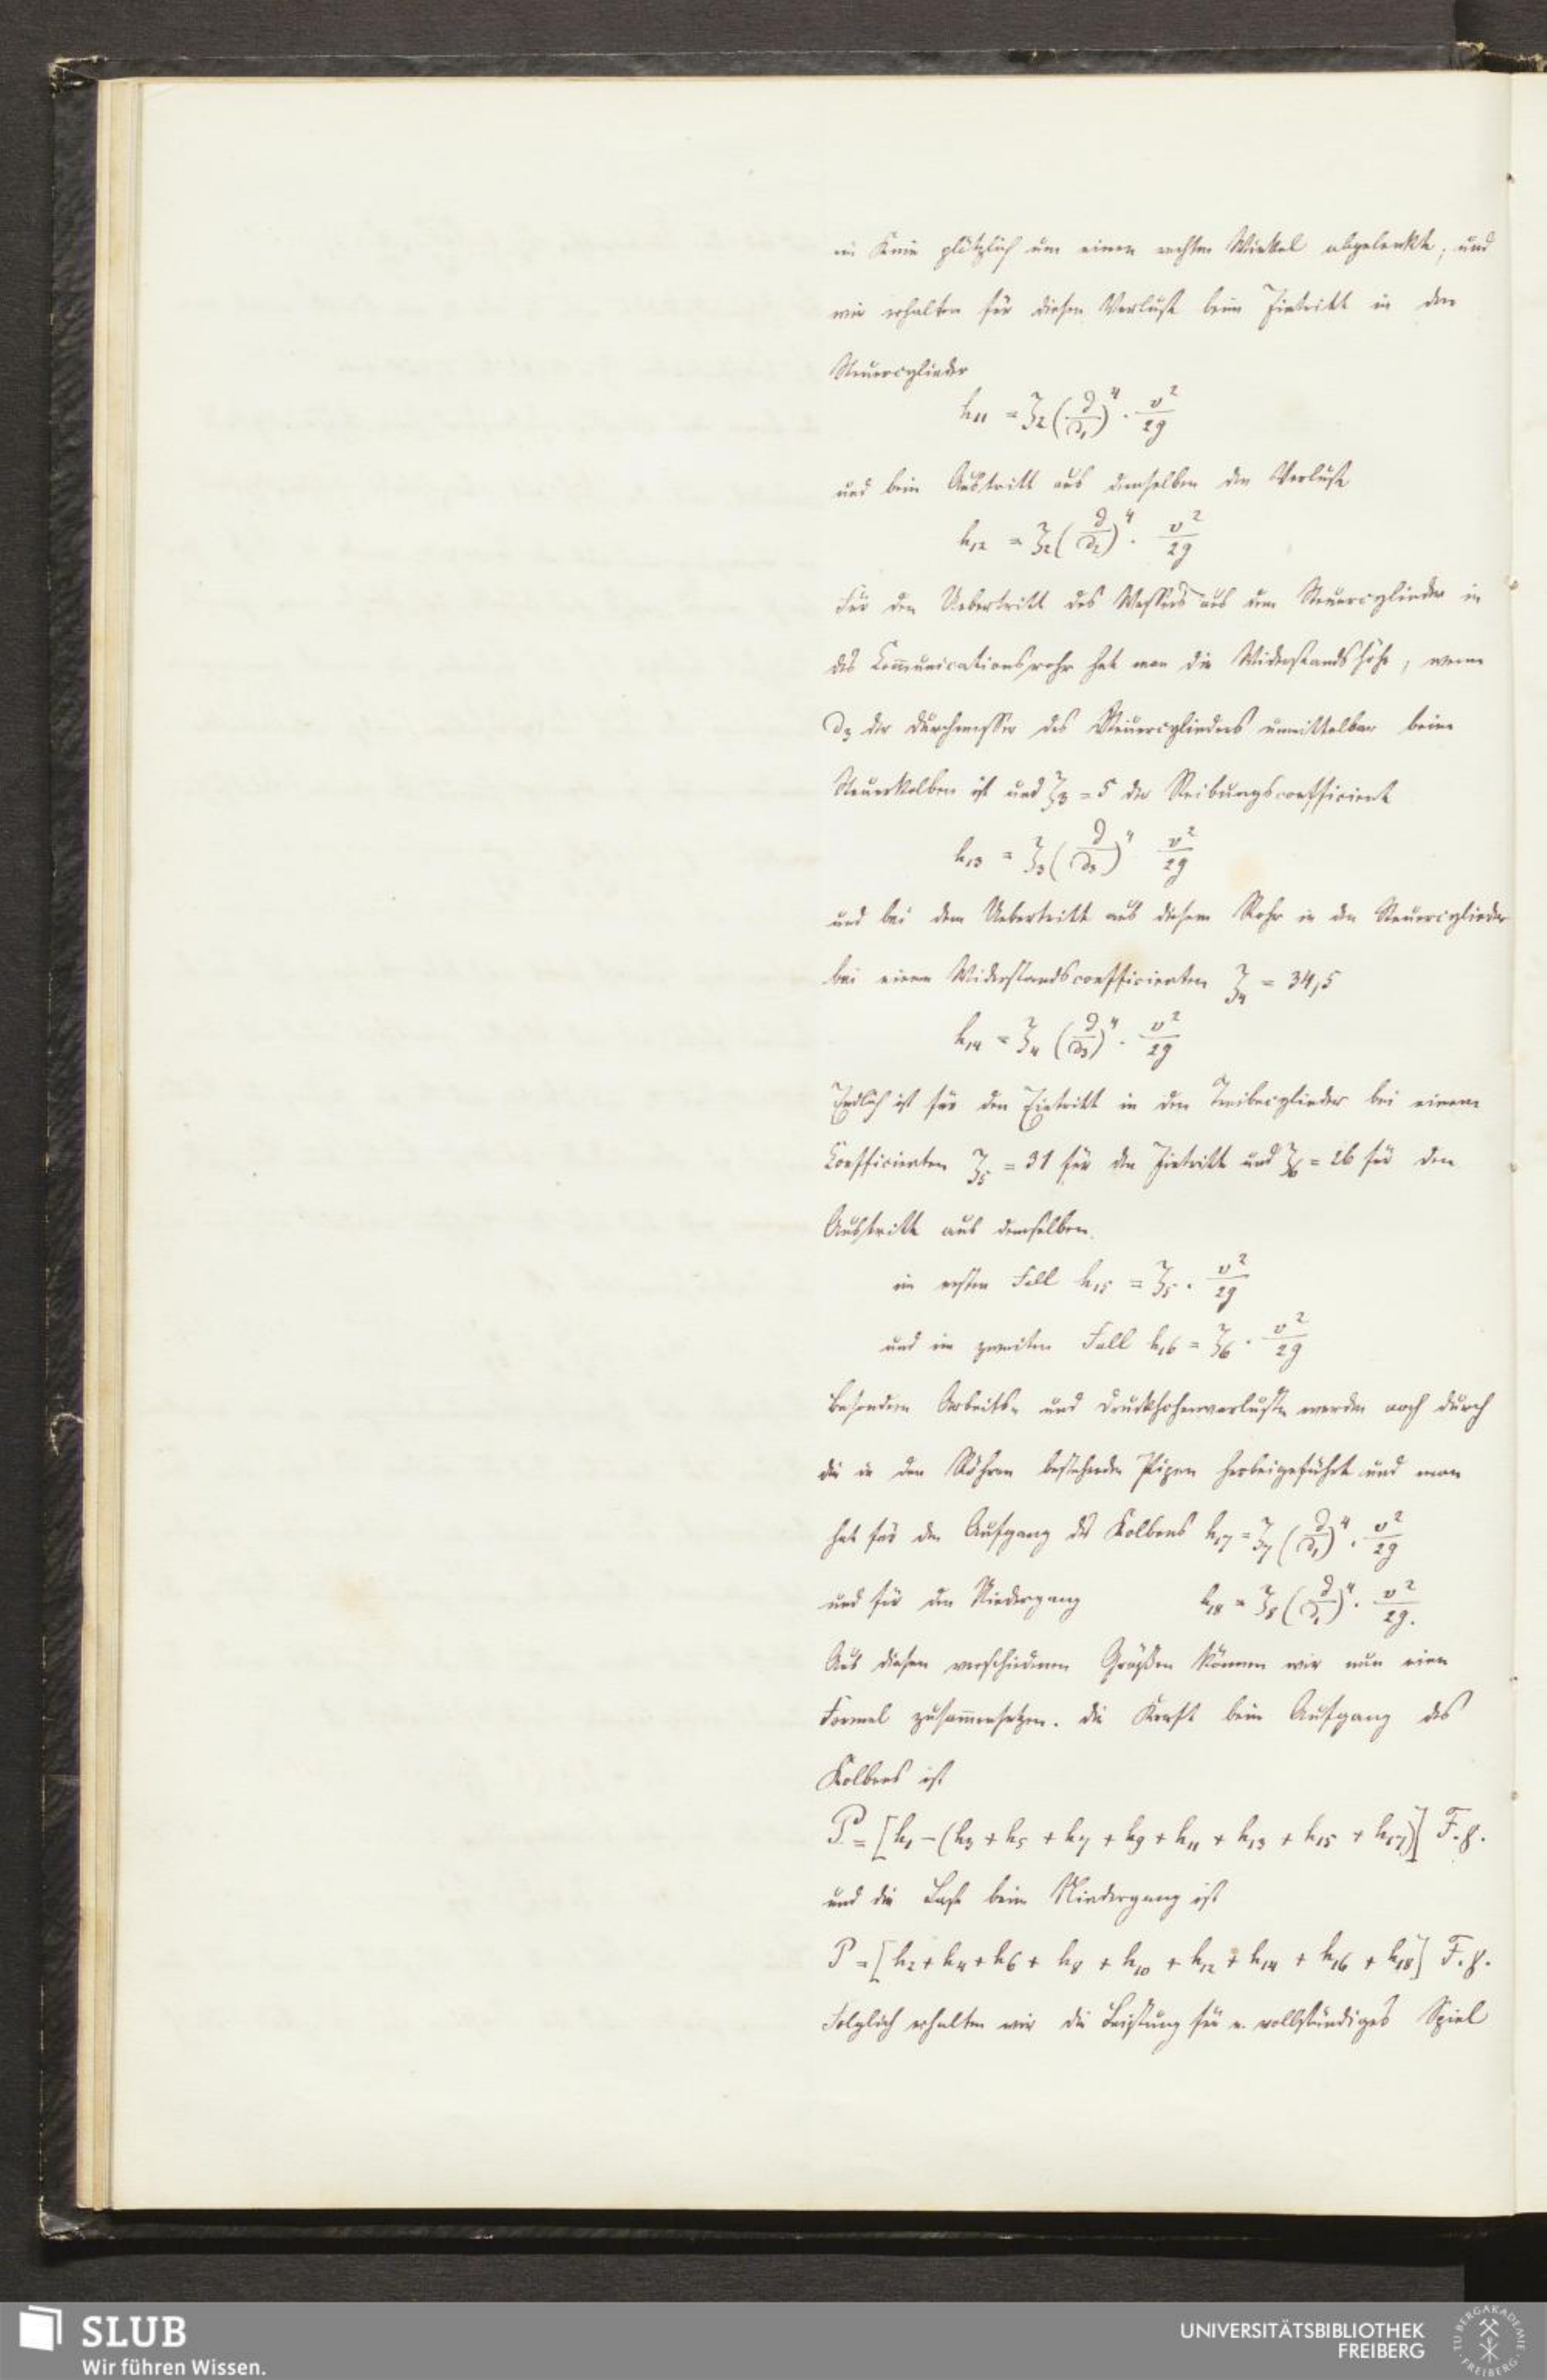 im Knie plötzlich um einen rechten Winkel abgelenkt, und
wir erhalten für diesen Verlust beim Eintritt in den
Steuercylinder
h₁₁ = ζ₂ (d/d₁)⁴ · v²/2g
und beim Austritt aus demselben den Verlust
h₁₂ = ζ₂ (d/d₂)⁴ · v²/2g
Für den Uebertritt des Wassers aus dem Steuercylinder in
das Com̄unicationsrohr hat man die Widerstandshöhe, wenn
d₃ der Durchmesser des Steuercylinders unmittelbar beim
Steuerkolben ist und ζ₃ = 5 der Reibungscoefficient
h₁₃ = ζ₃ (d/d₃)⁴ v²/2g
und bei dem Uebertritt aus diesem Rohr in den Steuercylinder
bei einem Widerstandscoefficienten ζ₄ = 34,5
h₁₄ = ζ₄ (d/d₃)⁴ · v²/2g
Endlich ist für den Eintritt in den Treibecylinder bei einem
Coefficienten ζ₅ = 31 für den Eintritt und ζ₆ = 26 für den
Austritt aus demselben.
im ersten Fall h₁₅ = ζ₅ · v²/2g
und im zweiten Fall h₁₆ = ζ₆ · v²/2g
Besondere Arbeits- und Druckhöhenverluste werden noch durch
die in den Röhren bestehenden herbeigeführt und man
hat für den Aufgang des Kolbens h₁₇ = ζ₇ (d/d₁)⁴ · v²/2g
und für den Niedergang h₁₈ = ζ₈ (d/d₁)⁴ · v²/2g.
Aus diesen verschiedenen Größen können wir nun eine
Formel zusam̄ensetzen. Die Kraft beim Aufgang des
Kolbens ist
P = [h₁ - (h₃ + h₅ + h₇ + h₉ + h₁₁ + h₁₃ + h₁₅ + h₁₇)] F.γ.
und die Last beim Niedergang ist
P = [h₂ + h₄ + h₆ + h₈ + h₁₀ + h₁₂ + h₁₄ + h₁₆ + h₁₈] F.γ.
Folglich erhalten wir die Leistung für e. vollständiges Spiel
SLUB
Wir führen Wissen.
UNIVERSITÄTSBIBLIOTHEK
FREIBERG
TU BERGAKADEMIE
FREIBERG